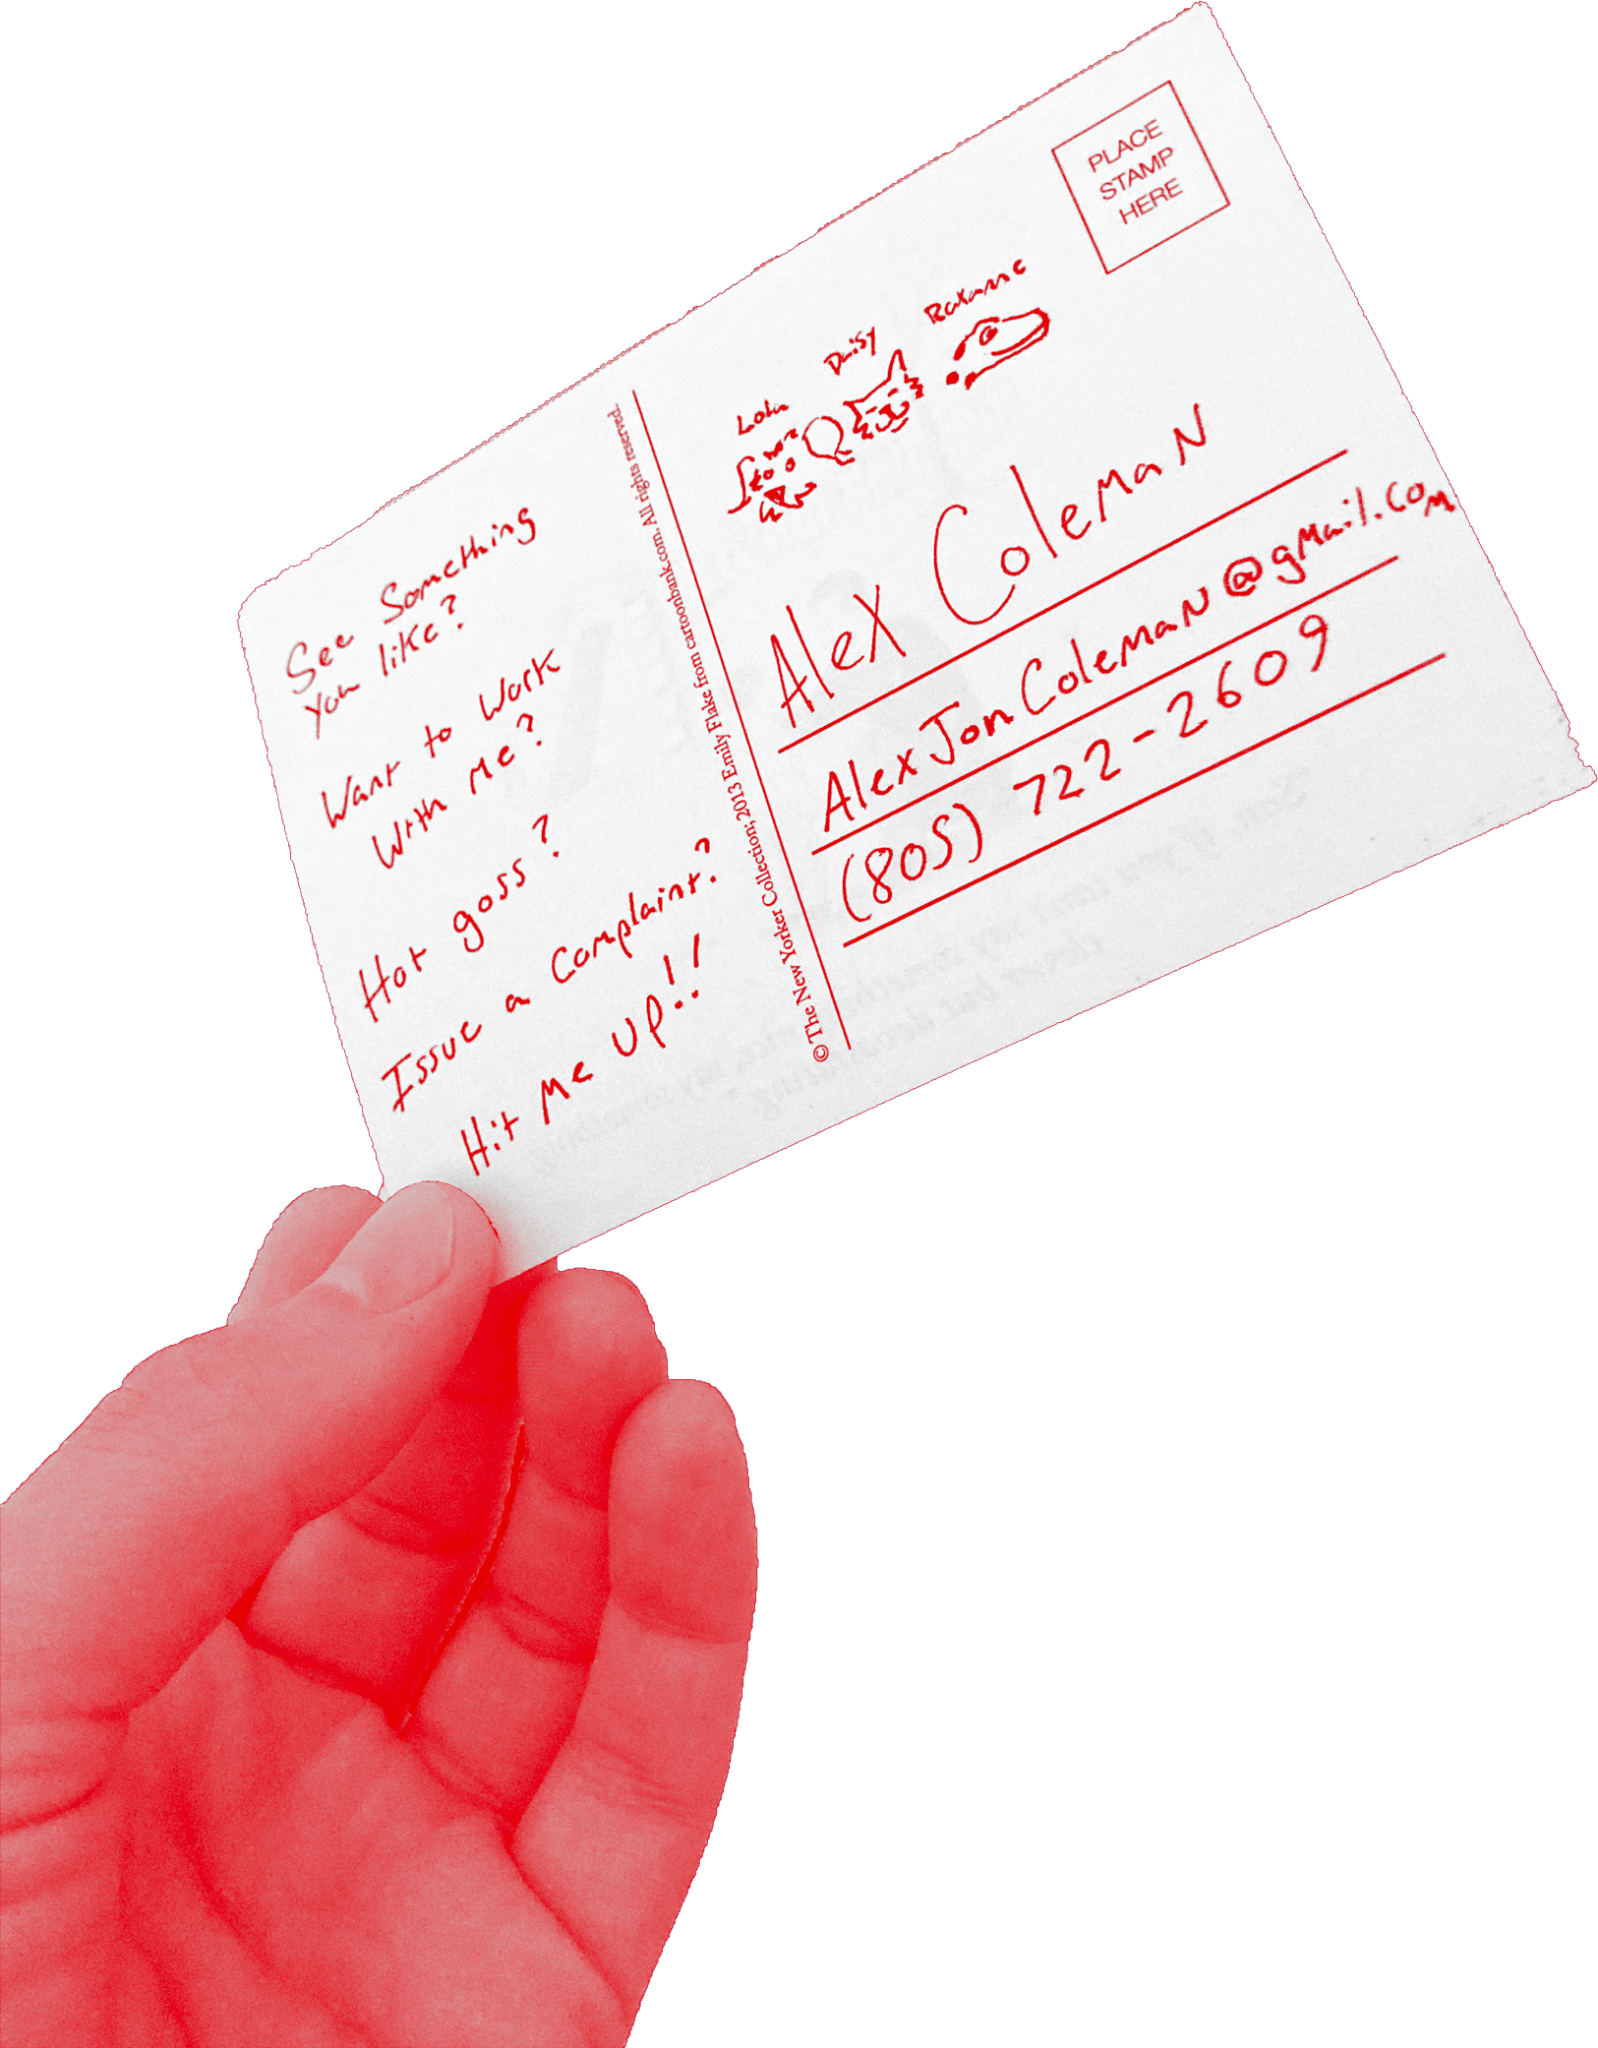 See Something
you like?
Want to Work
With Me?
Hot goss?
Issue a Complaint?
Hit Me Up!!
© The New Yorker Collection; 2013 Emily Flake from cartoonbank.com. All rights reserved.
PLACE
STAMP
HERE
Lola
Daisy
Roxanne
Alex Coleman
AlexJonColeman@gmail.com
(805) 722-2609